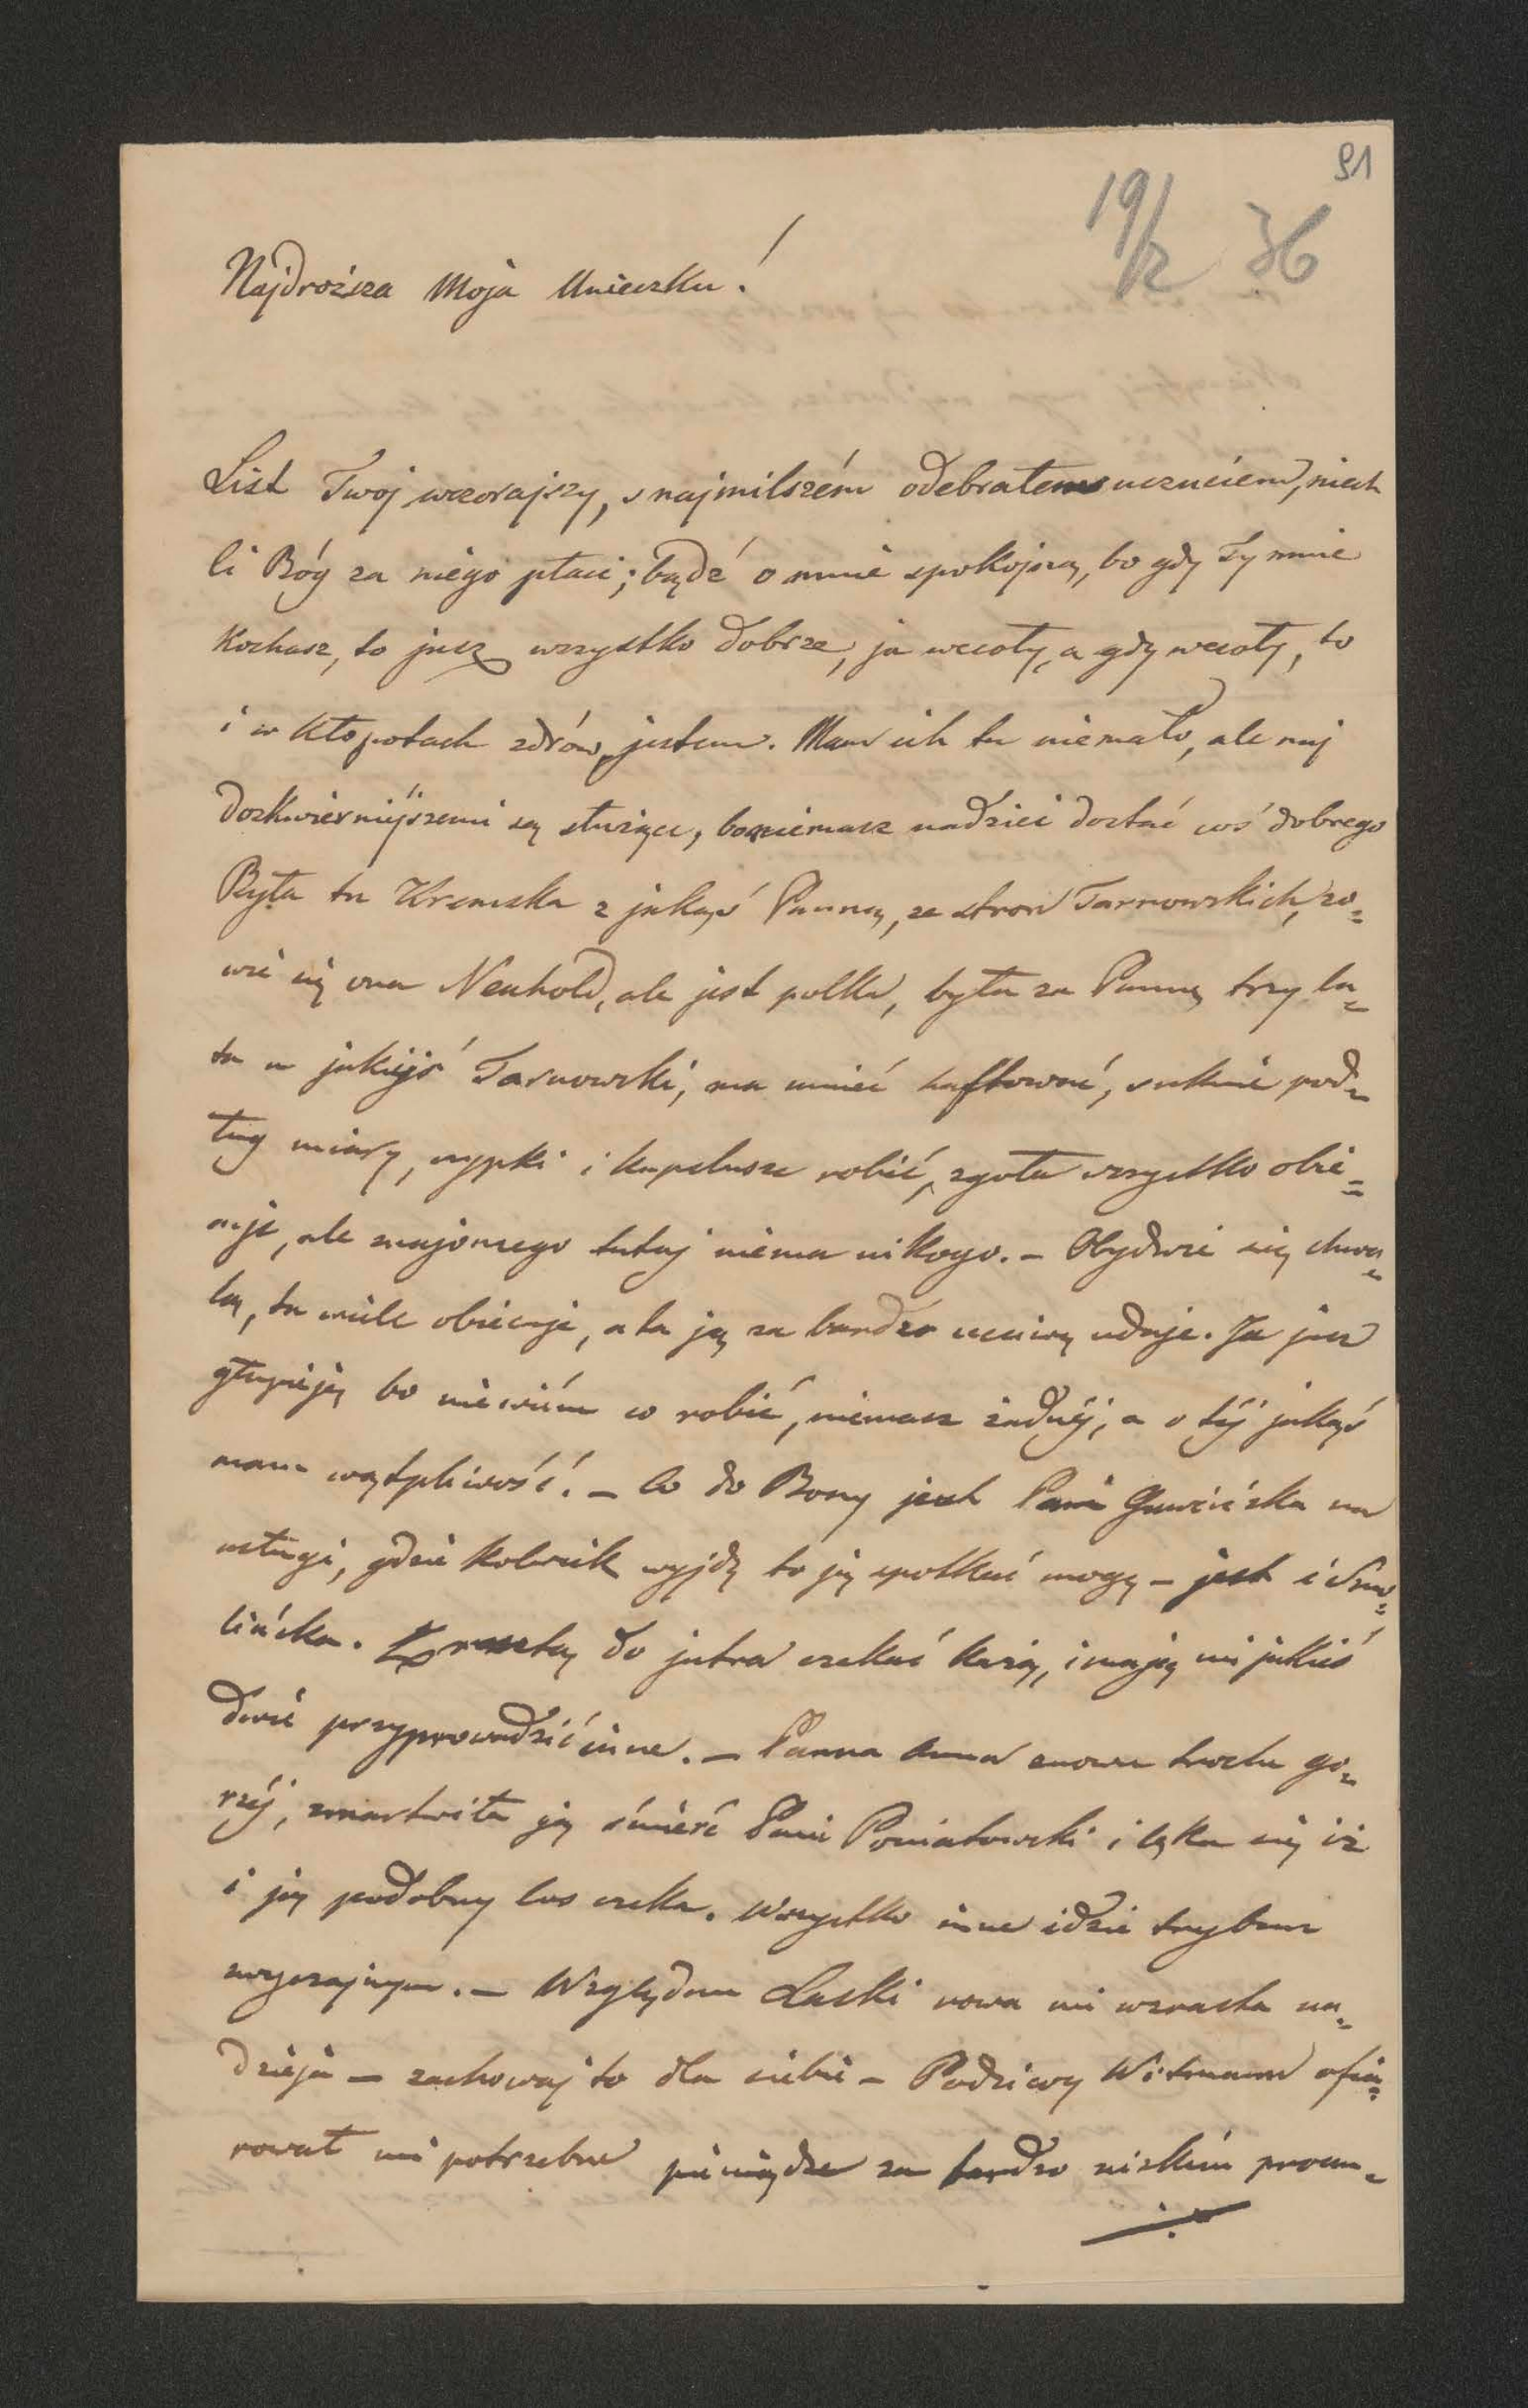 91
19/2 36
Najdroższa Moja Unieczku!
List Twoj wczorajszy, s najmilszém odebrałem uczuciem, niech
Ci Bóg za niego płaci; bądź o mnie spokojną, bo gdy Ty mnie
Kochasz, to jusz wszystko dobrze, ja wesoły, a gdy wesoły, to
i w kłopotach zdrów jestem. Mam ich tu niemało, ale naj
dozkwierniejszemi są służące, bo niemasz nadziei dostać coś dobrego
Była tu Kremska z jakąś Panną, ze stron Tarnowskich, zo=
wie się ona Neuhold, ale jest polka, była za Pannę trzy la=
ta u jakiejś Tarnowski, ma umieć haftować, suknie pod=
ług miary, czypki i kapelusze robić, zgoła wszystko obie=
cuje, ale znajomego tutaj niema nikogo. – Obydwie się chwa=
lą, ta wiele obiecuje, a ta ją za bardzo uczciwą udaje. Ja jusz
głupieję bo niewiém co robić, niemasz żadnéj, a o téj jakąś
mam wątpliwość. – Co do Bony jest Pani na
usługi, gdzie kolwiek wyjdę to ją spotkać mogę – jest i Smo=
lińska. Zresztą do jutra czekać każą, i mają mi jakieś
dwie przyprowadzić inne. – Panna Anna znowu trochu go=
rzéj, zmartwiła ją śmierć Pani Poniatowski i lęka się iż
i ją podobny los czeka. Wszystko inne idzie trybem
zwyczajnym. – Względem Laski nowa mi wzrasta na=
dzieja – zachowaj to dla siebie – Podziwy Witmann ofia=
rował mi potrzebne pieniądze za bardzo nizkim procen=